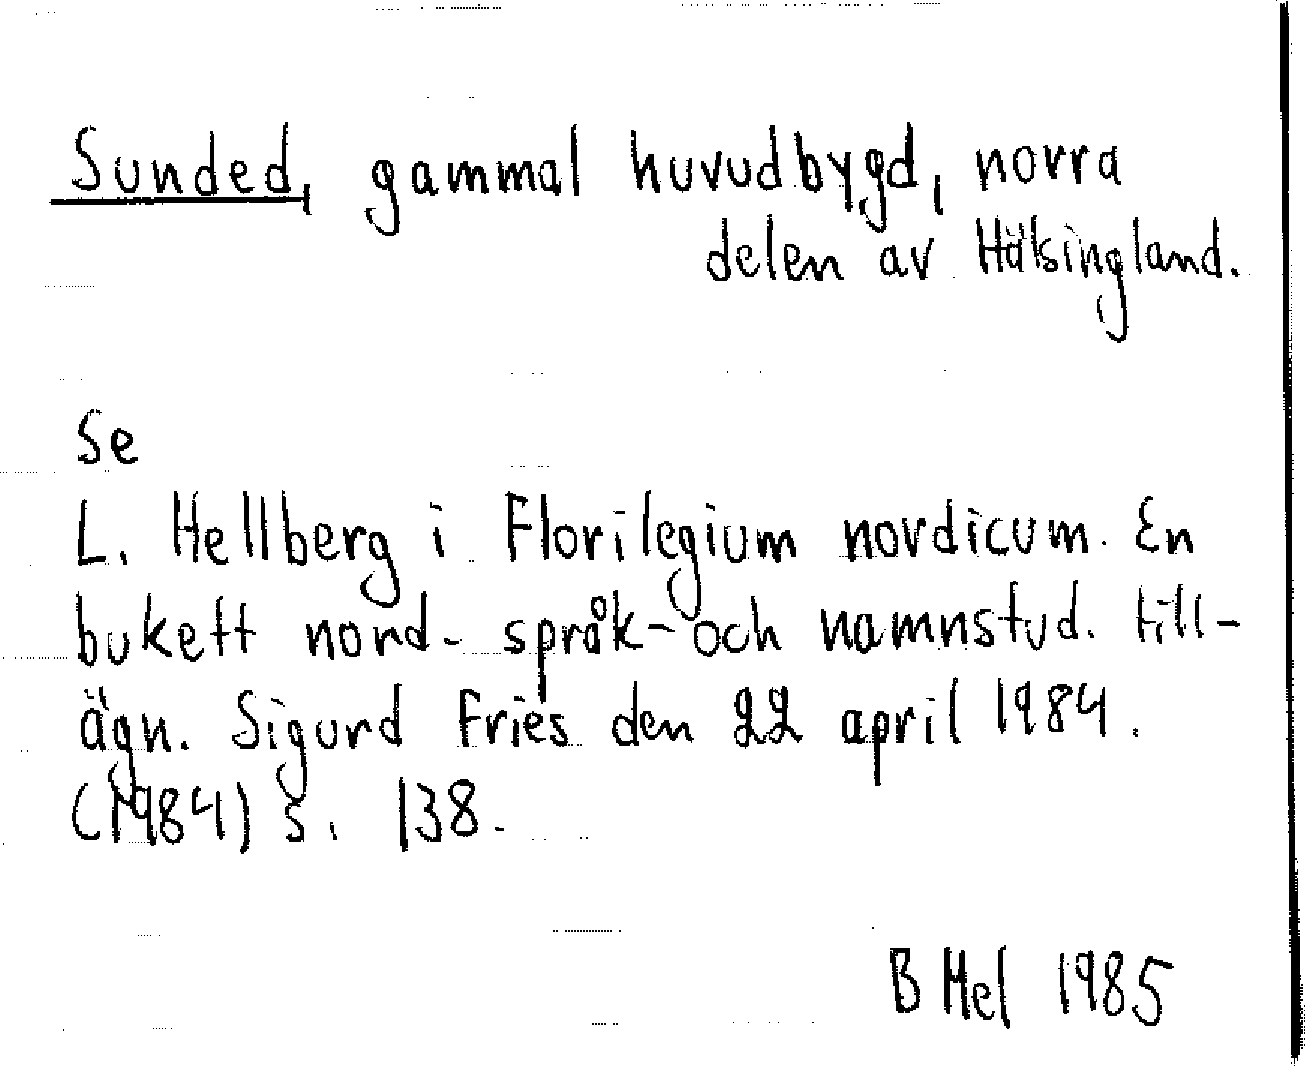 Sunded, gammal huvudbygd, norra
delen av Hälsingland.
Se
L. Hellberg i Florilegium nordicum. En
bukett nord. språk- och namnstud. till-
ägn. Sigurd Fries den 22 april 1984.
(1984) s. 138.
B Mel 1985